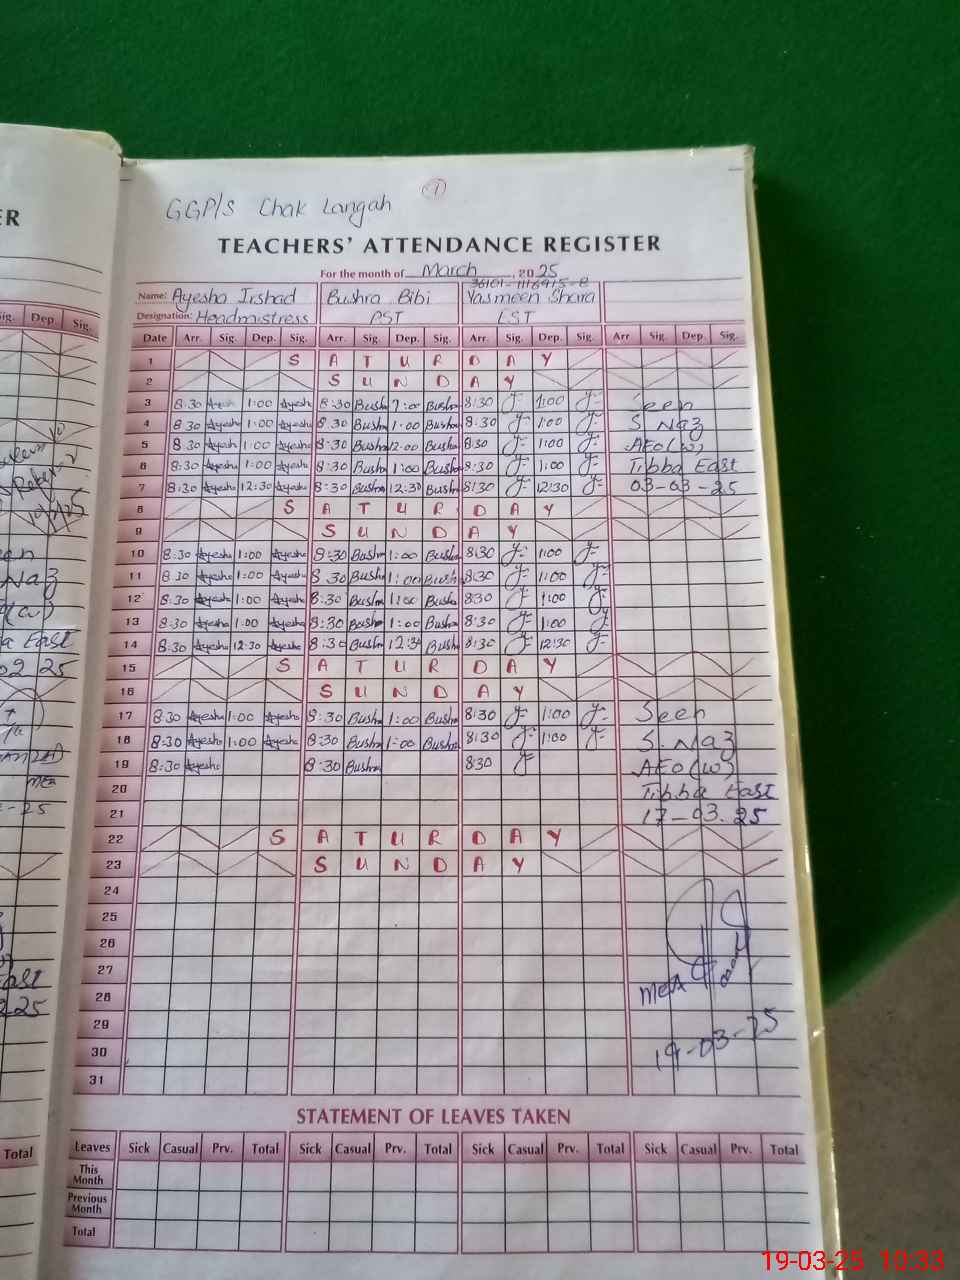 GGP/S Chak Langah
1
TEACHERS' ATTENDANCE REGISTER
For the month of March, 2025
36101-1116915-8
Name: Ayesha Irshad Bushra Bibi Yasmeen
Designation: Headmistress PST
Date Arr. Sig. Dep. Sig. Arr. Sig. Dep. Sig. Arr. Sig. Dep. Sig. Arr Sig. Dep. Sig.
1 S A T U R D A Y
2 S U N D A Y
3 8:30 Ayesh 1:00 Ayesh 8:30 Bush Bush 8:30 1:00 Seen
4 8:30 Ayesh 1:00 Ayesh 8:30 Bush 1:00 Bush 8:30 1:00 S. Naz
5 8:30 Ayesh 1:00 Ayesh 8:30 Bush Bush 8:30 1:00 AEO(W)
6 8:30 Ayesh 1:00 Ayesh 8:30 Bush 1:00 Bush 8:30 1:00 Tibba East
7 8:30 Ayesh 12:30 Ayesh 8:30 Bush 12:30 Bush 8:30 12:30 03-03-25
8 S A T U R D A Y
9 S U N D A Y
10 8:30 Ayesh 1:00 Ayesh 8:30 Bush 1:00 Bush 8:30 1:00
11 8:30 Ayesh 1:00 Ayesh 8:30 Bush 1:00 Bush 8:30 1:00
12 8:30 Ayesh 1:00 Ayesh 8:30 Bush 1:00 Bush 8:30 1:00
13 8:30 Ayesh 1:00 Ayesh 8:30 Bush 1:00 Bush 8:30 1:00
14 8:30 Ayesh 12:30 Ayesh 8:30 Bush 12:30 Bush 8:30 12:30
15 S A T U R D A Y
16 S U N D A Y
17 8:30 Ayesha 1:00 Ayesha 8:30 Bush 1:00 Bush 8:30 1:00 Seen
18 8:30 Ayesh 1:00 Ayesh 8:30 Bush 1:00 Bush 8:30 1:00 S. Naz
19 8:30 Ayesh 8:30 Bush 8:30 AEO(W)
20 Tibba East
21 17-03-25
22 S A T U R D A Y
23 S U N D A Y
24
25
26
27
28 MEA
29
30 19-03-25
31
STATEMENT OF LEAVES TAKEN
Leaves Sick Casual Prv. Total Sick Casual Prv. Total Sick Casual Prv. Total Sick Casual Prv. Total
This Month
Previous Month
Total
Sig. Dep. Sig.
Total
19-03-25 10:33